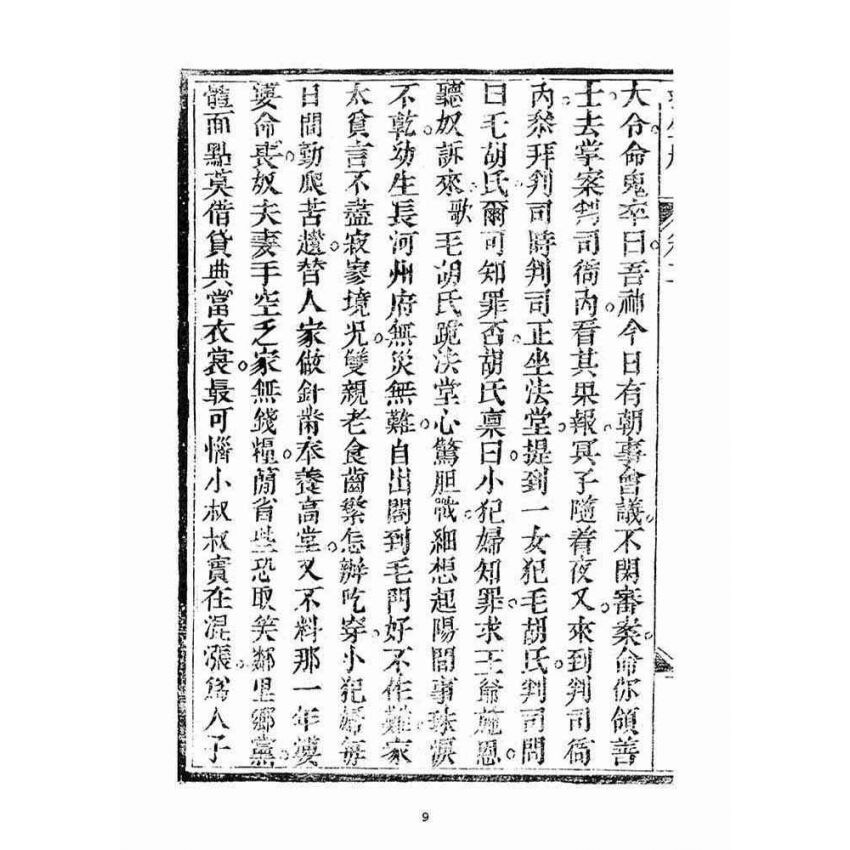 大令命鬼卒曰吾神今日有朝事會議。不閑審案。命你領善
士去掌案判司衙內。看其果報。冥子隨着夜叉。來到判司衙
內。叅拜判司。時判司正坐法堂。提到一女犯毛胡氏。判司問
曰毛胡氏。爾可知罪否。胡氏禀曰。小犯婦知罪。求王爺施恩。
聽奴訴來。歌 毛胡氏跪法堂心驚胆戰。細想起陽間事珠淚
不乾。幼生長河州府無災無難。自出閣到毛門好不作難。家
太貧言不盡寂寥境况。雙親老食齒繁怎辦吃穿。小犯婦每
日間勤爬苦趲。替人家做針黹奉養高堂。又不料那一年婆
婆命喪。奴夫妻手空乏家無錢糧。簡省些恐取笑鄰里鄉黨。
體面點莫借貸典當衣裳。最可惱小叔叔實在混漲。爲人子
9